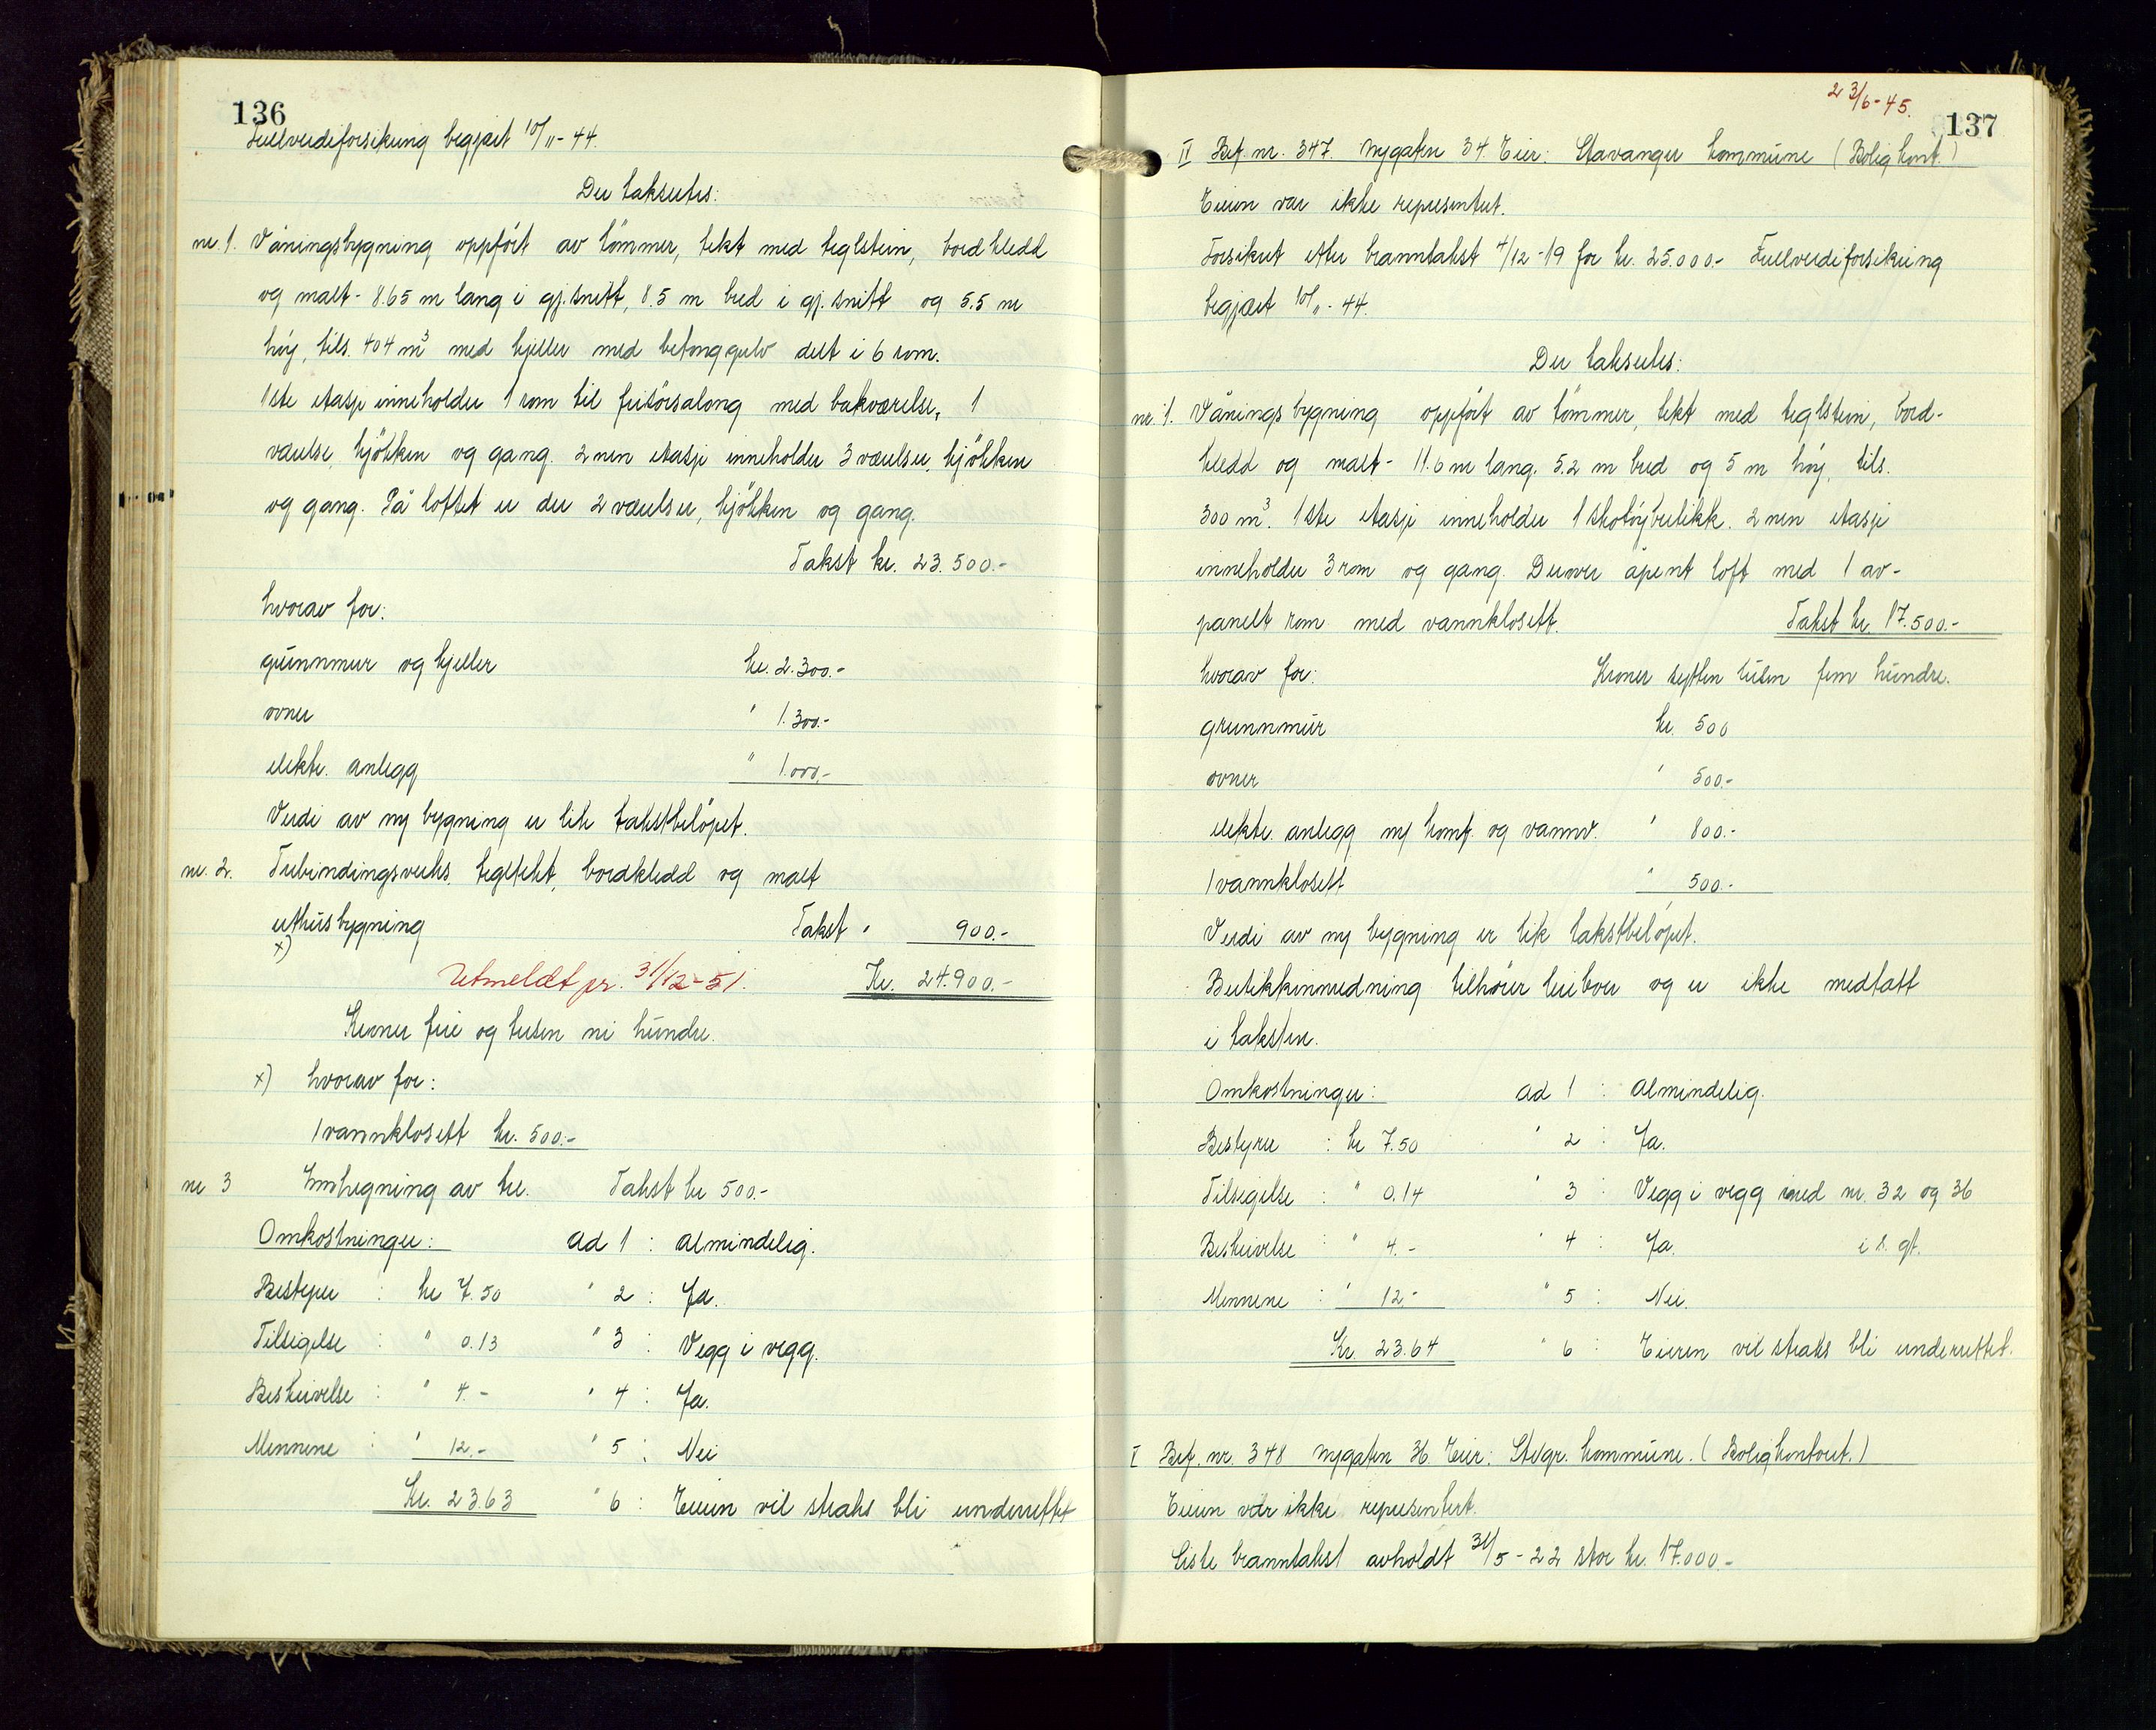 136
Fullverdiforsikring begjært 10/11-44.
Der takseres:
nr. 1. Våningsbygning oppført av tømmer, tekt med teglstein, bordkledd
og malt - 8.65 m lang i gj.snitt, 8.5 m bred i gj.snitt og 5.5 m
høy, tils. 404 m³ med kjeller med betonggulv delt i 6 rom.
1ste etasje inneholder 1 rom til frisörsalong med bakværelse, 1
værelse, kjökken og gang. 2nen etasje inneholder 3 værelser, kjökken
og gang. På loftet er der 2 værelser, kjökken og gang.
Takst kr. 23.500.-
hvorav for:
grunnmur og kjeller kr. 2.300.-
ovner " 1.300.-
elektr. anlegg " 1.000.-
Verdi av ny bygning er lik takstbelöpet.
nr. 2. Utbindingsverks, teglstekt, bordkledd og malt
uthusbygning Takst " 900.-
x)
Utmeldt pr. 31/12-51. Kr. 24.900.-
Kroner fire og tusen ni hundre.
x) hvorav for:
1 vannklosett kr. 500.-
nr 3 Innhegning av tre. Takst kr 500.-
Omkostninger: ad 1 : Almindelig.
Bestyrer : kr 7.50 " 2 : Ja.
Tilsigelse : " 0.13 " 3 : Vegg i vegg.
Beskrivelse : " 4.- " 4 : Ja.
Mennene : " 12.- " 5 : Nei
Kr. 23.63 " 6 : Eieren vil straks bli underrettet
23/6-45.
137
II Bef. nr. 347. Nygaten 34. Eier: Stavanger kommune (Boligkont.)
Eieren var ikke representert.
Forsikret etter branntakst 4/12-19 for kr. 25.000.- Fullverdiforsikring
begjært 10/11-44.
Der takseres:
nr. 1. Våningsbygning oppført av tömmer, tekt med teglstein, bord-
kledd og malt - 11.6 m lang, 5.2 m bred og 5 m høy, tils.
300 m³. 1ste etasje inneholder 1 skotøybutikk. 2nen etasje
inneholder 3 rom og gang. Derover åpent loft med 1 av-
panelt rom med vannklosett. Takst kr. 17.500.-
hvorav for: Kroner sytten tusen fem hundre.
grunnmur kr. 500
ovner " 500.-
elektr. anlegg m/ komf. og vannv. " 800.-
1 vannklosett " 500.-
Verdi av ny bygning er lik takstbelöpet.
Butikkinnredning tilhører leiboer og er ikke medtatt
i taksten.
Omkostninger: ad 1 : Almindelig.
Bestyrer : kr 7.50 " 2 : Ja.
Tilsigelse : " 0.14 " 3 : Vegg i vegg med nr. 32 og 36
Beskrivelse : " 4.- " 4 : Ja. i s. gt.
Mennene : " 12.- " 5 : Nei.
Kr. 23.64 " 6 : Eieren vil straks bli underrettet.
I Bef. nr. 348 Nygaten 36. Eier: Stvgr. kommune. (Boligkontoret.)
Eieren var ikke representert.
Siste branntakst avholdt 31/5-22 stor kr. 17.000.-